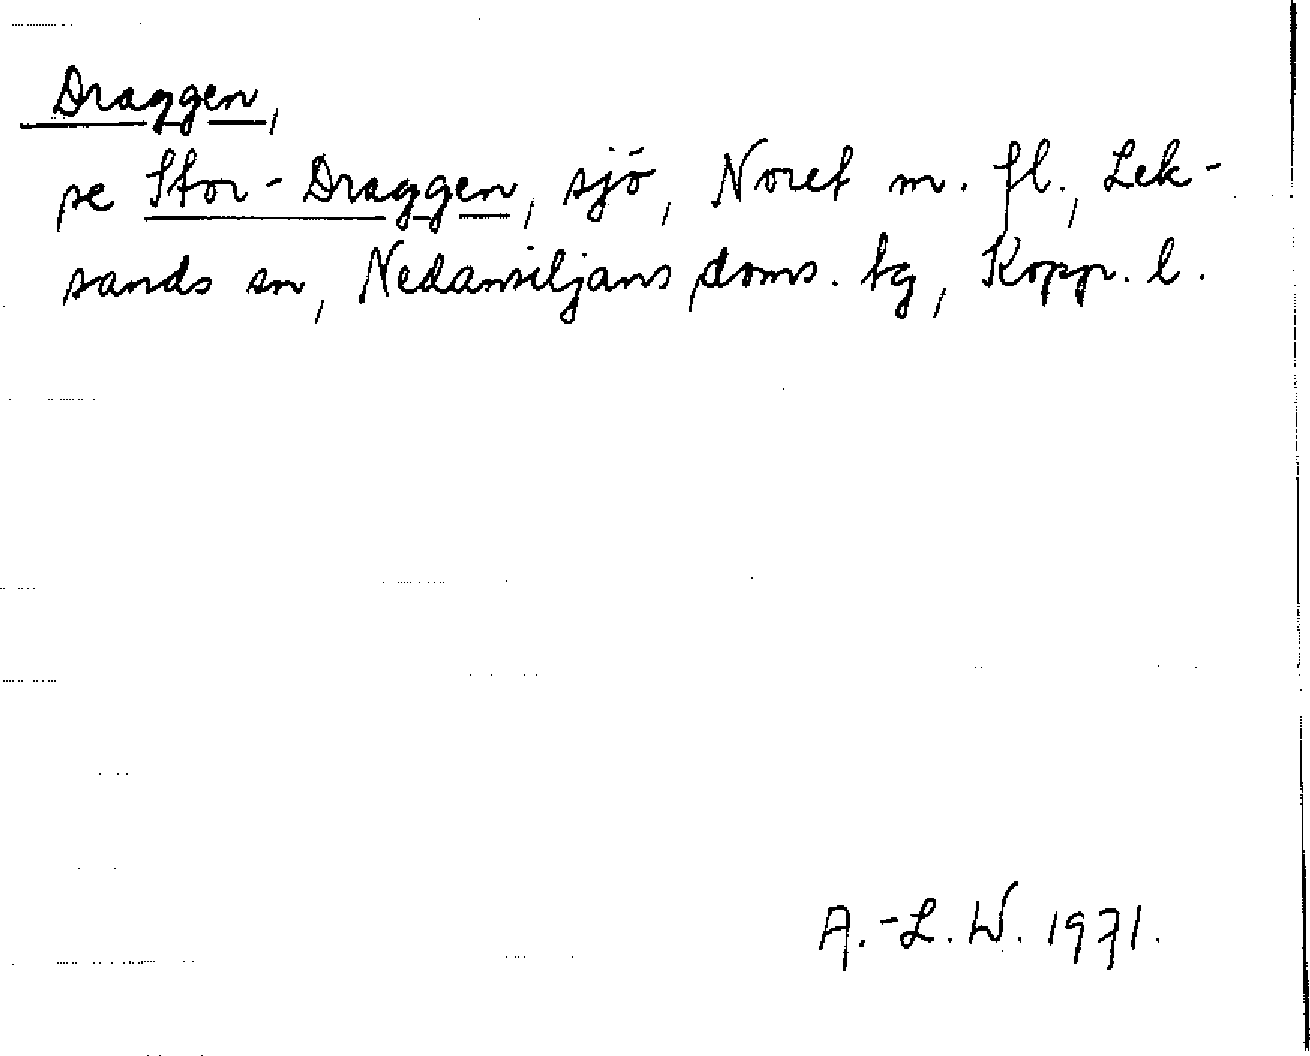 Draggen,
se Stor-Draggen, sjö, Noret m. fl., Lek-
sands sn, Nedansiljans doms. tg, Kopp. l.
A.-L. W. 1971.